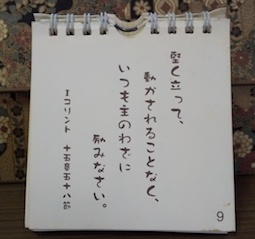 堅く立って、
動かされることなく、
いつも主のわざに
励みなさい。
Ⅰコリント 十五章五十八節
9